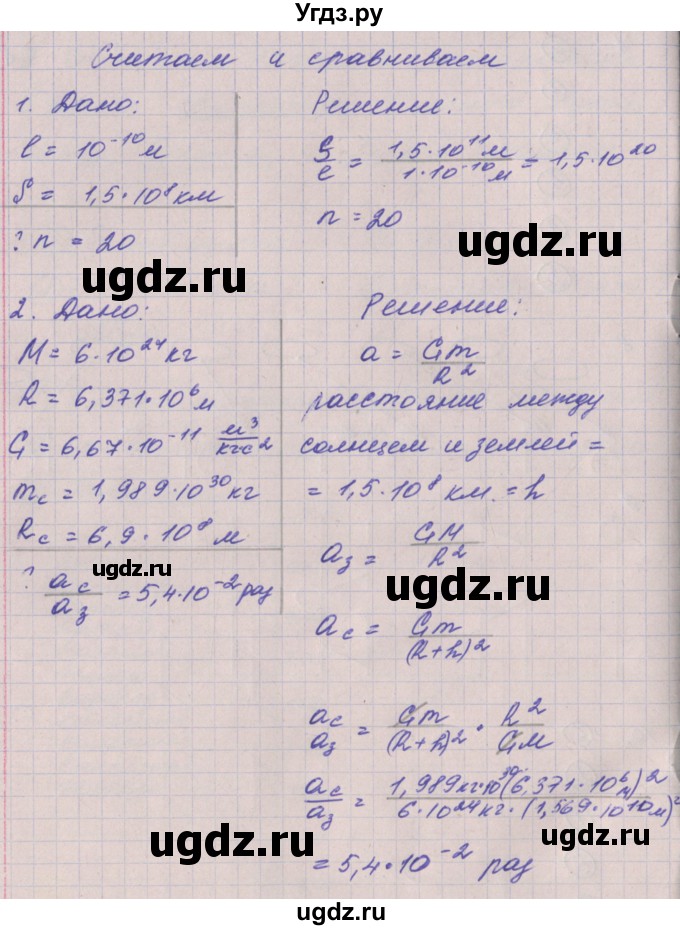 Угдз.ру
Считаем и сравниваем
1. Дано:
l = 10⁻¹⁰ м
S = 1,5·10⁸ км
? n = 20
Решение:
S/l = 1,5·10¹¹ м / 1·10⁻¹⁰ м = 1,5·10²⁰
n = 20
ugdz.ru
ugdz.ru
2. Дано:
M = 6·10²⁴ кг
R = 6,371·10⁶ м
G = 6,67·10⁻¹¹ м³/кгс²
mc = 1,989·10³⁰ кг
Rc = 6,9·10⁸ м
? aс/aз = 5,4·10⁻² раз
Решение:
a = Gm/R²
расстояние между
солнцем и землей =
= 1,5·10⁸ км. = h
aз = GM/R²
aс = Gm/(R+h)²
aс/aз = Gm/(R+h)² · R²/GM
aс/aз = 1,989кг·10³⁰(6,371·10⁶м)² / 6·10²⁴кг·(1,569·10¹⁰м)²
= 5,4·10⁻² раз
ugdz.ru
ugdz.ru
ugdz.ru
ugdz.ru
ugdz.ru
ugdz.ru